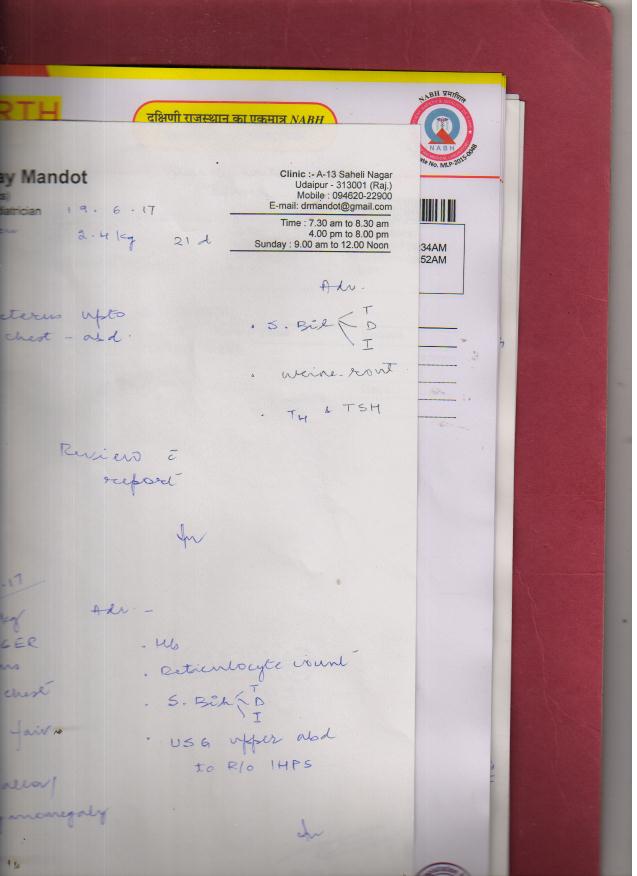 RTH
दक्षिणी राजस्थान का एकमात्र NABH
NABH प्रमाणित
NABH
te No. MLP-2015-0048
ay Mandot
Clinic :- A-13 Saheli Nagar
Udaipur - 313001 (Raj.)
Mobile : 094620-22900
E-mail: drmandot@gmail.com
diatrician 19.6.17
Time : 7.30 am to 8.30 am
4.00 pm to 8.00 pm
Sunday : 9.00 am to 12.00 Noon
:34AM
:52AM
2.4 kg 21 d
Adv.
cterus upto
chest - abd.
. S. Bil T
D
I
. urine-rout
. T4 & TSH
Review c̄
report
.17
kg
GER
Adv -
. Hb
. Reticulocyte count
chest
. S. Bil T
D
I
fair
. USG upper abd
to R/O IHPS